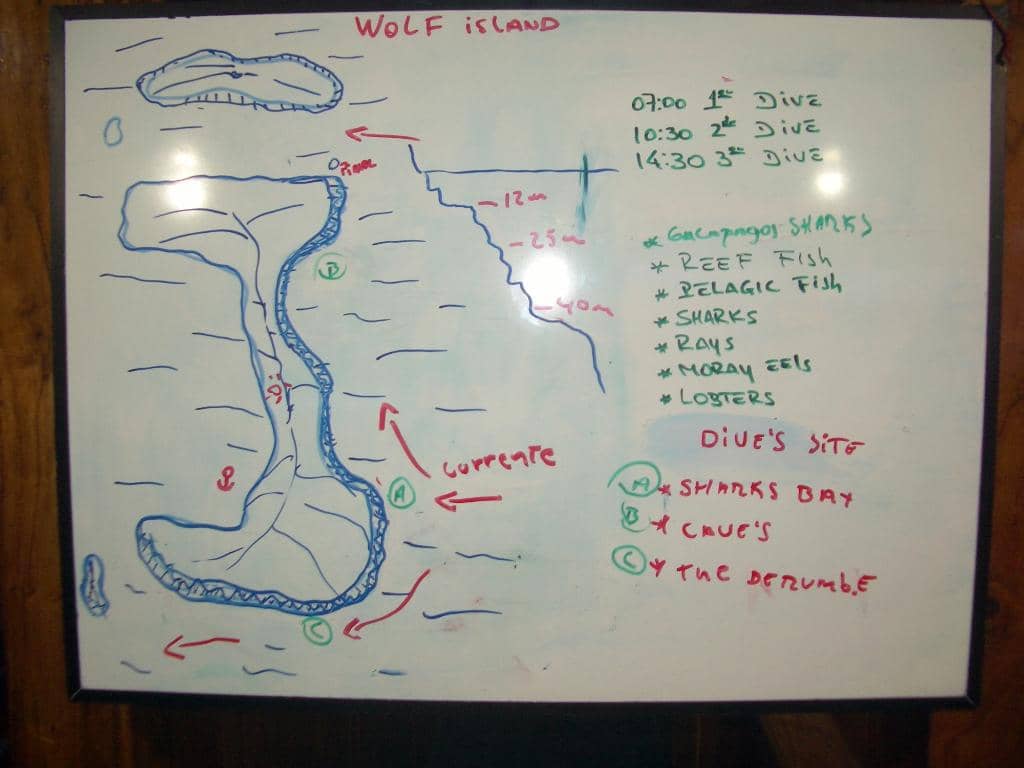 WOLF ISLAND
07:00 1st DIVE
10:30 2de DIVE
14:30 3re DIVE
12m
25m
40m
* GALAPAGOS SHARKS
* REEF FISH
* PELAGIC FISH
* SHARKS
* RAYS
* MORAY EELS
* LOBTERS
B
CORRENTE
A
C
DIVE'S SITE
A * SHARKS BAY
B * CAVE'S
C * THE DERUMBE